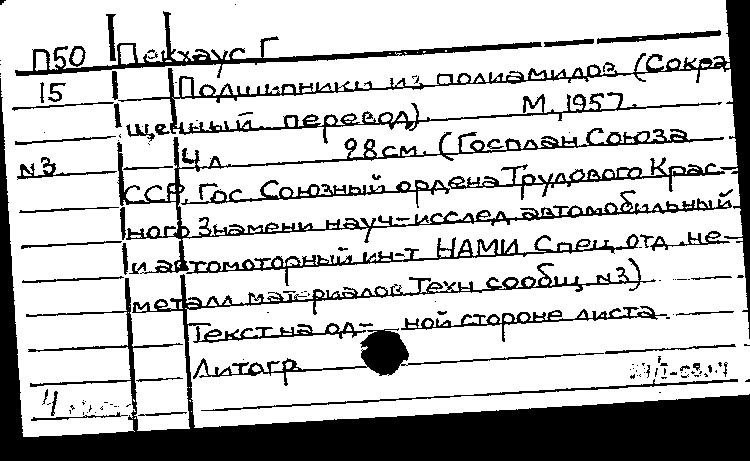 П50 Пекхаус, Г
15 Подшипники из полиамидов (Сокра-
щенный перевод). М., 1957.
N3 4 л. 28см. (Госплан Союза
ССР. Гос. Союзный ордена Трудового Крас-
ного Знамени науч-исслед. автомобильный
и автомоторный ин-т НАМИ. Спец. отд. не-
металл. материалов. Техн. сообщ. N3)
Текст на од- ной стороне листа
Литогр.
4